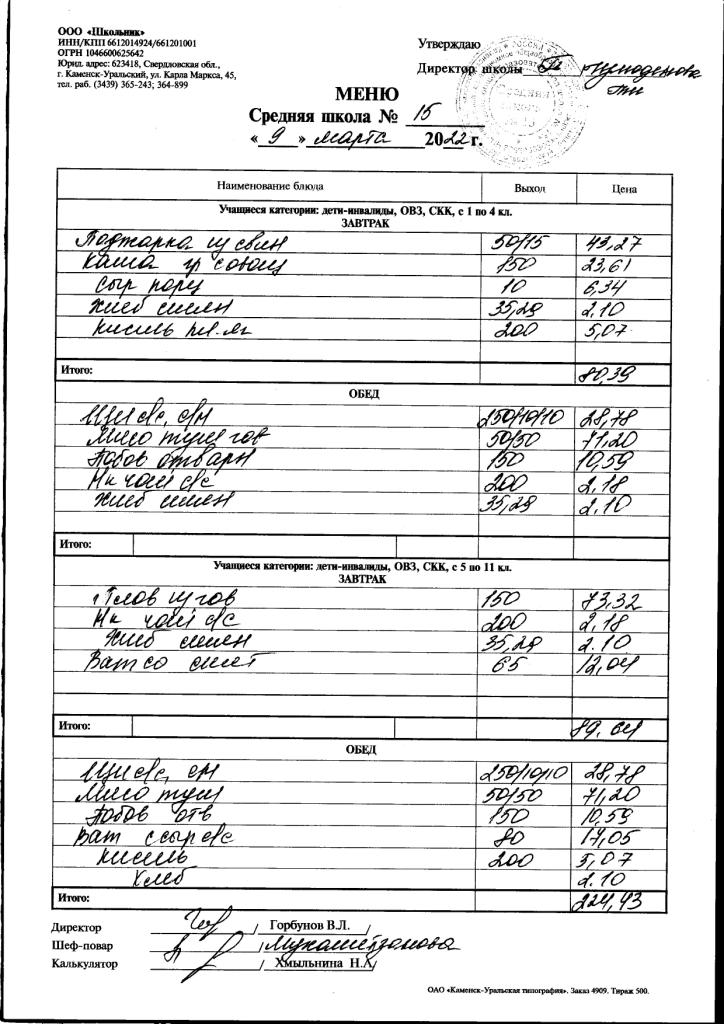 ООО «Школьник»
ИНН/КПП 6612014924/661201001
ОГРН 1046600625642
Юрид. адрес: 623418, Свердловская обл.,
г. Каменск-Уральский, ул. Карла Маркса, 45,
тел. раб. (3439) 365-243; 364-899
Утверждаю
Директор школы
МЕНЮ
Средняя школа № 15
« 9 » марта 2022 г.
Наименование блюда Выход Цена
Учащиеся категории: дети-инвалиды, ОВЗ, СКК, с 1 по 4 кл.
ЗАВТРАК
Поджарка из свин 50/15 43,27
Каша гр с овощ 150 23,61
Сыр порц 10 6,34
Хлеб смеш 35,29 2.10
Кисель пл.яг 200 5,07
Итого: 80,39
ОБЕД
Щи с/с, см 250/10/10 28,78
Мясо туш гов 50/50 71,20
отварн 150 10,59
чай с/с 200 2.18
Хлеб 35,29 2.10
Итого:
Учащиеся категории: дети-инвалиды, ОВЗ, СКК, с 5 по 11 кл.
ЗАВТРАК
Плов из гов 150 73,32
чай с/с 200 2,18
Хлеб 35,29 2.10
Ват со смет 65 12,04
Итого: 89.64
ОБЕД
Щи с/с, см 250/10/10 28,78
Мясо туш 50/50 71,20
отв 150 10,59
Ват с сыр с/с 80 17,05
Кисель 200 5,07
Хлеб 2.10
Итого: 224,43
Директор / Горбунов В.Л. /
Шеф-повар / Мухаметзанова
Калькулятор / Хмыльнина Н.А/
ОАО «Каменск-Уральская типография». Заказ 4909. Тираж 500.